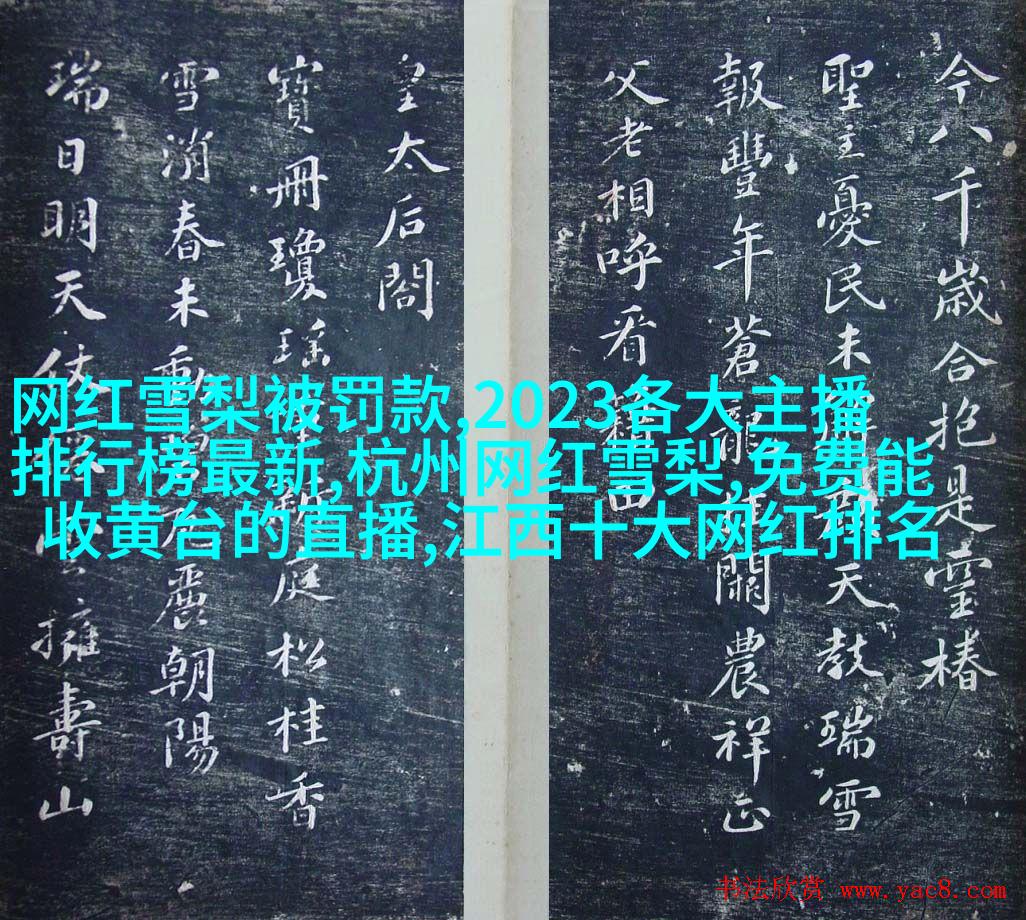 今八千歳合抱是靈椿
聖主憂民未天教瑞雪
報豐年蒼龍闕農祥正
父老相呼看田
皇太后閣
寶冊瓊瑤庭松桂香
雪消春未動麗朝陽
瑞日明天仗擁壽山
网红雪梨被罚款,2023各大主播
排行榜最新,杭州网红雪梨,免费能
收黄台的直播,江西十大网红排名
书法欣赏 www.yac8.com